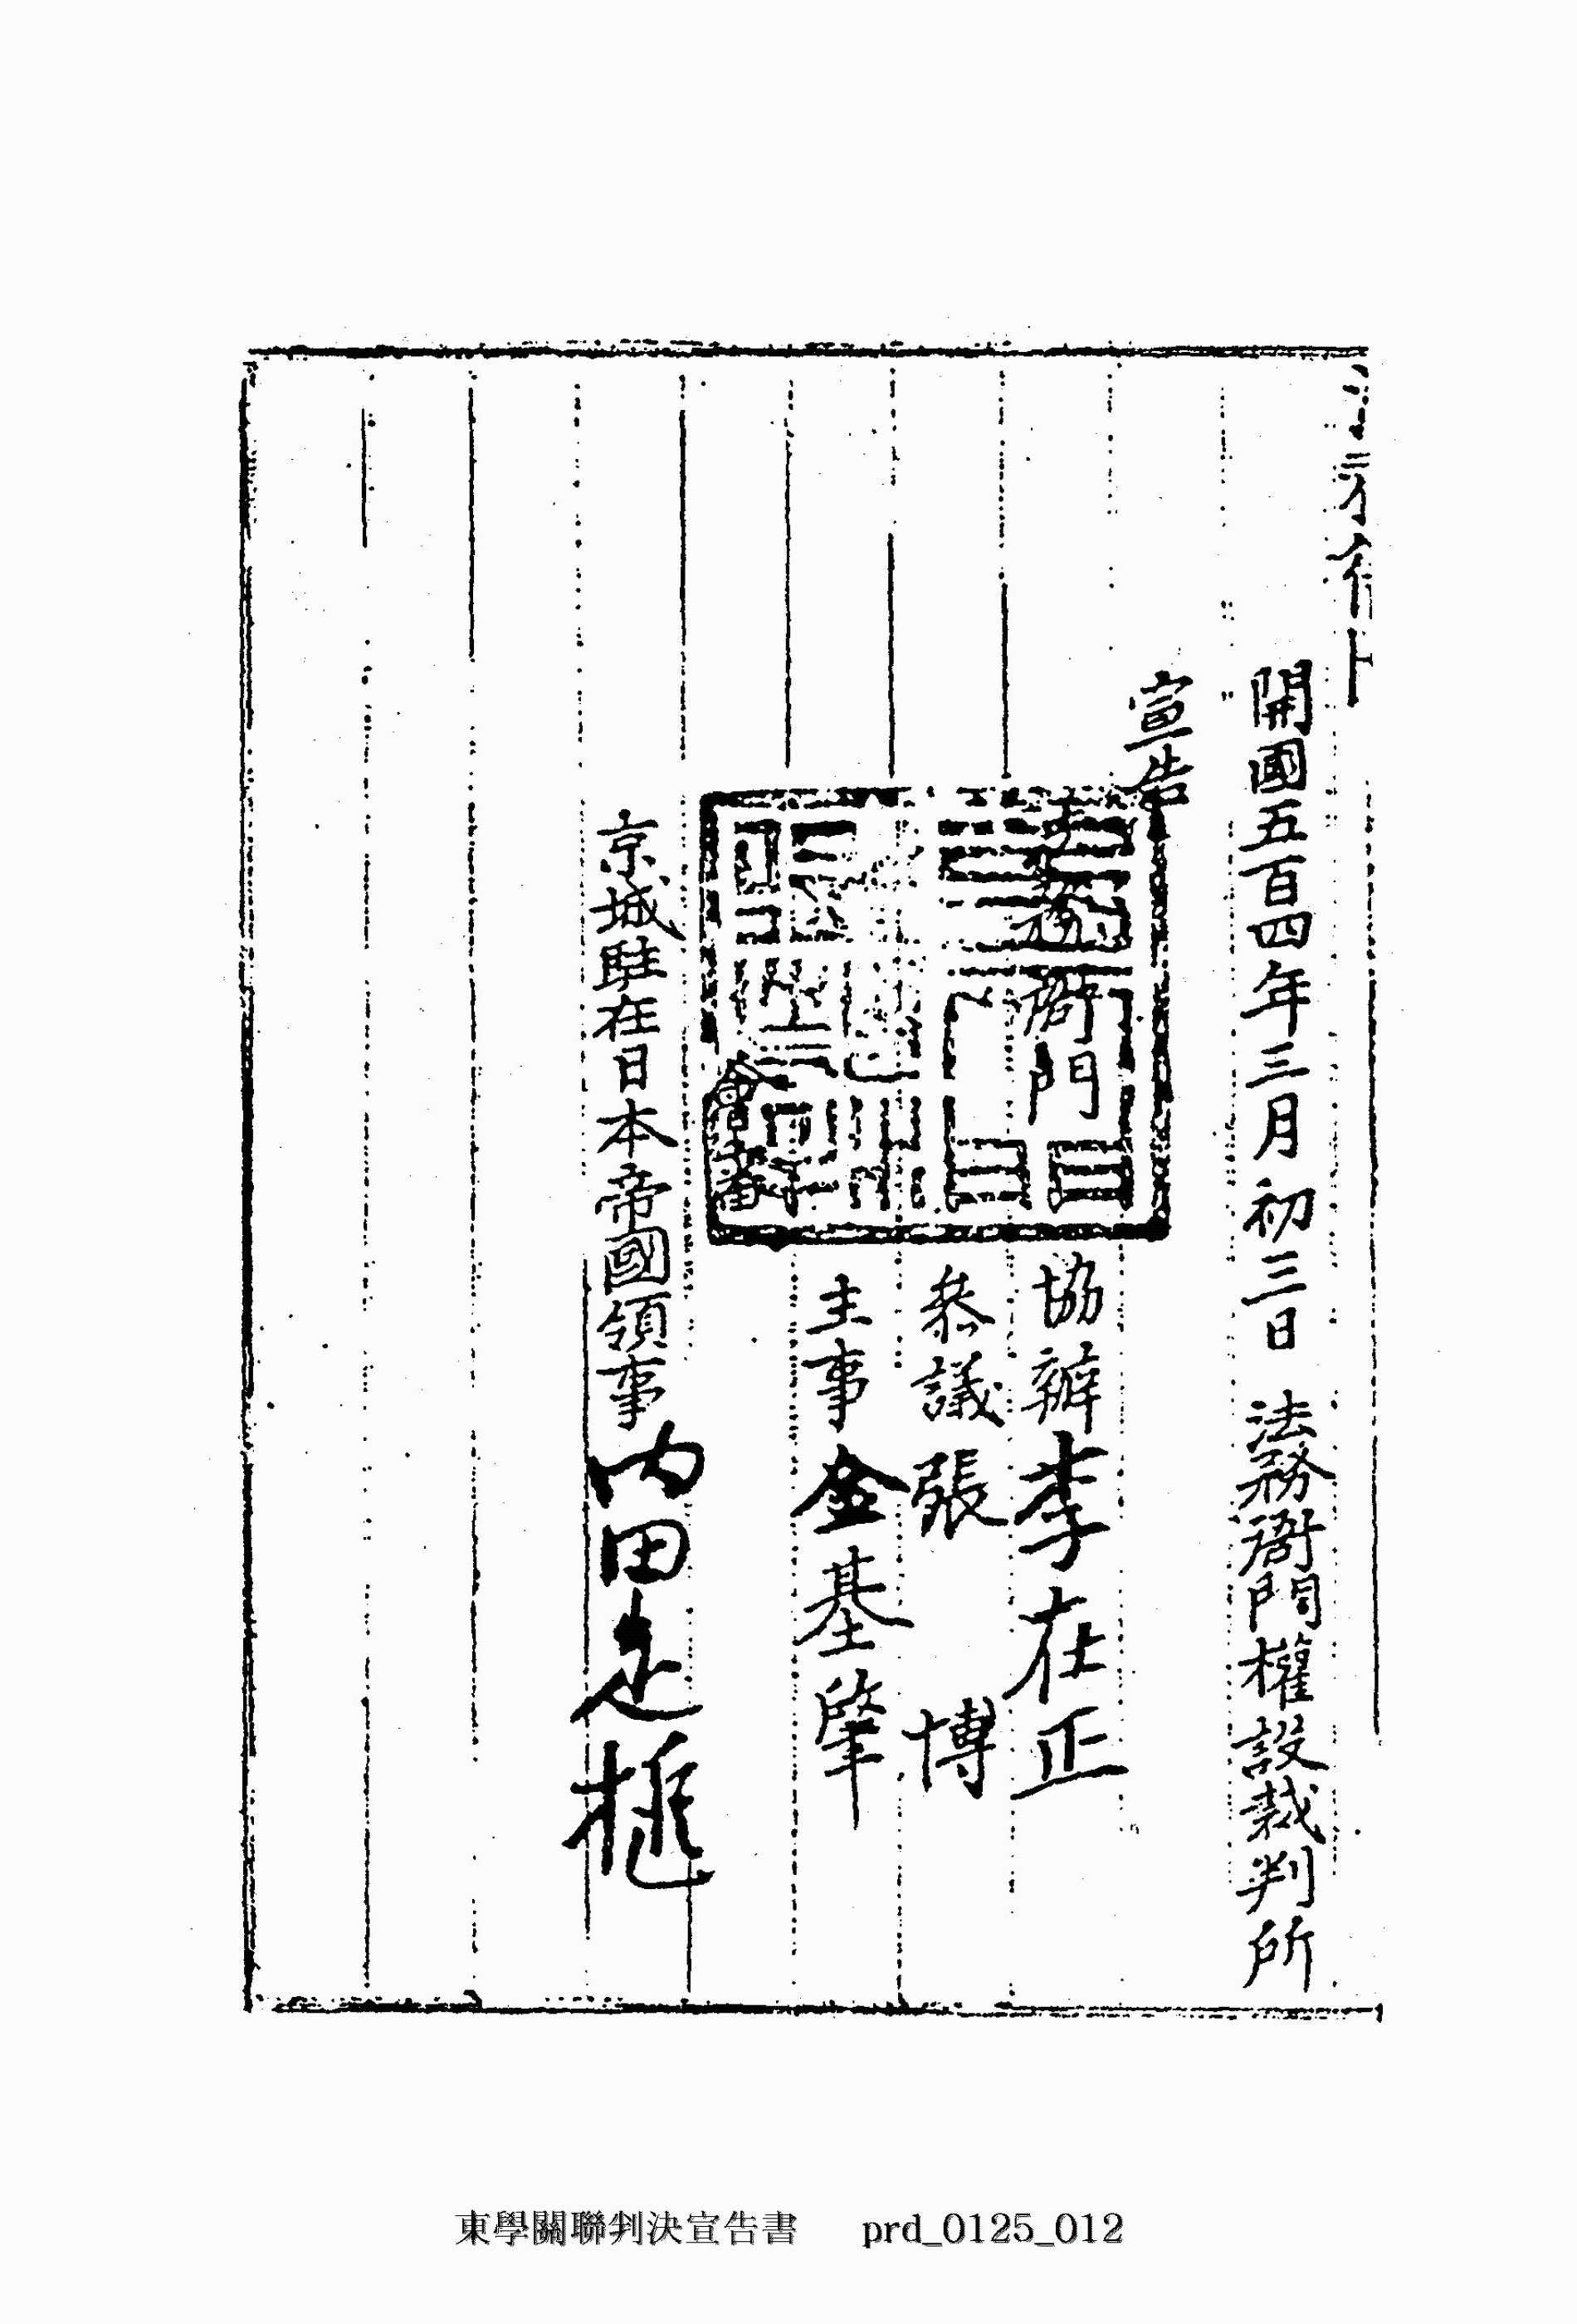 開國五百四年三月初三日 法務衙門權設裁判所
宣告
法務衙門
協辦 李在正
參議 張 博
主事 金基肇
會審
京城駐在日本帝國領事 内田定槌
東學關聯判決宣告書 prd_0125_012